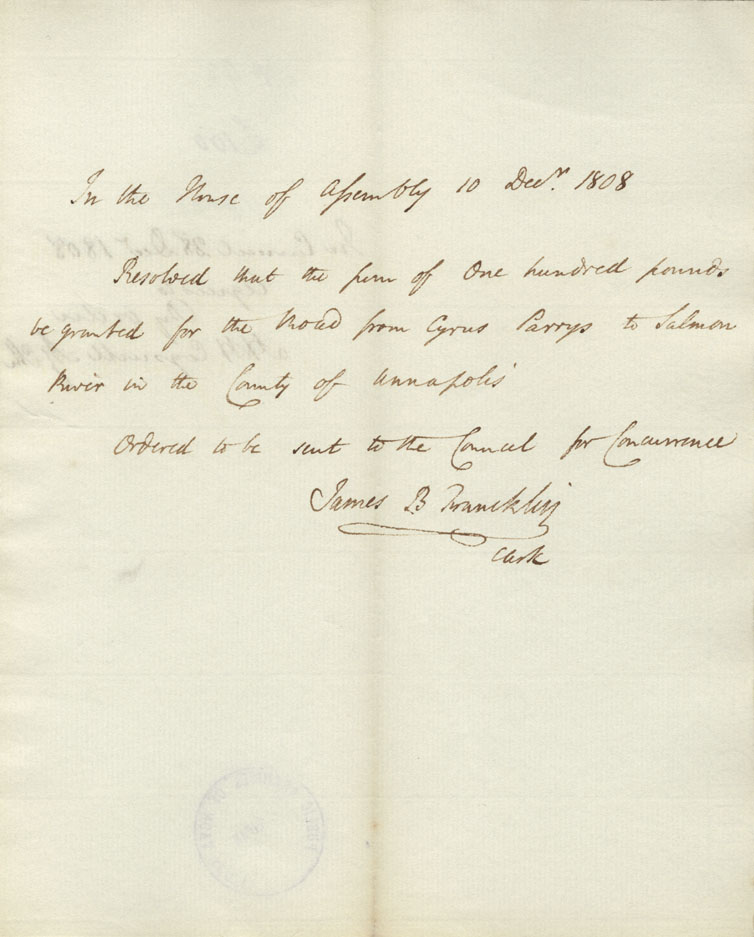 In the House of Assembly 10 Decr. 1808
Resolved that the sum of One hundred pounds
be granted for the Road from Cyrus Parrys to Salmon
River in the County of Annapolis
Ordered to be sent to the Council for Concurrence
James B Francklin
Clerk